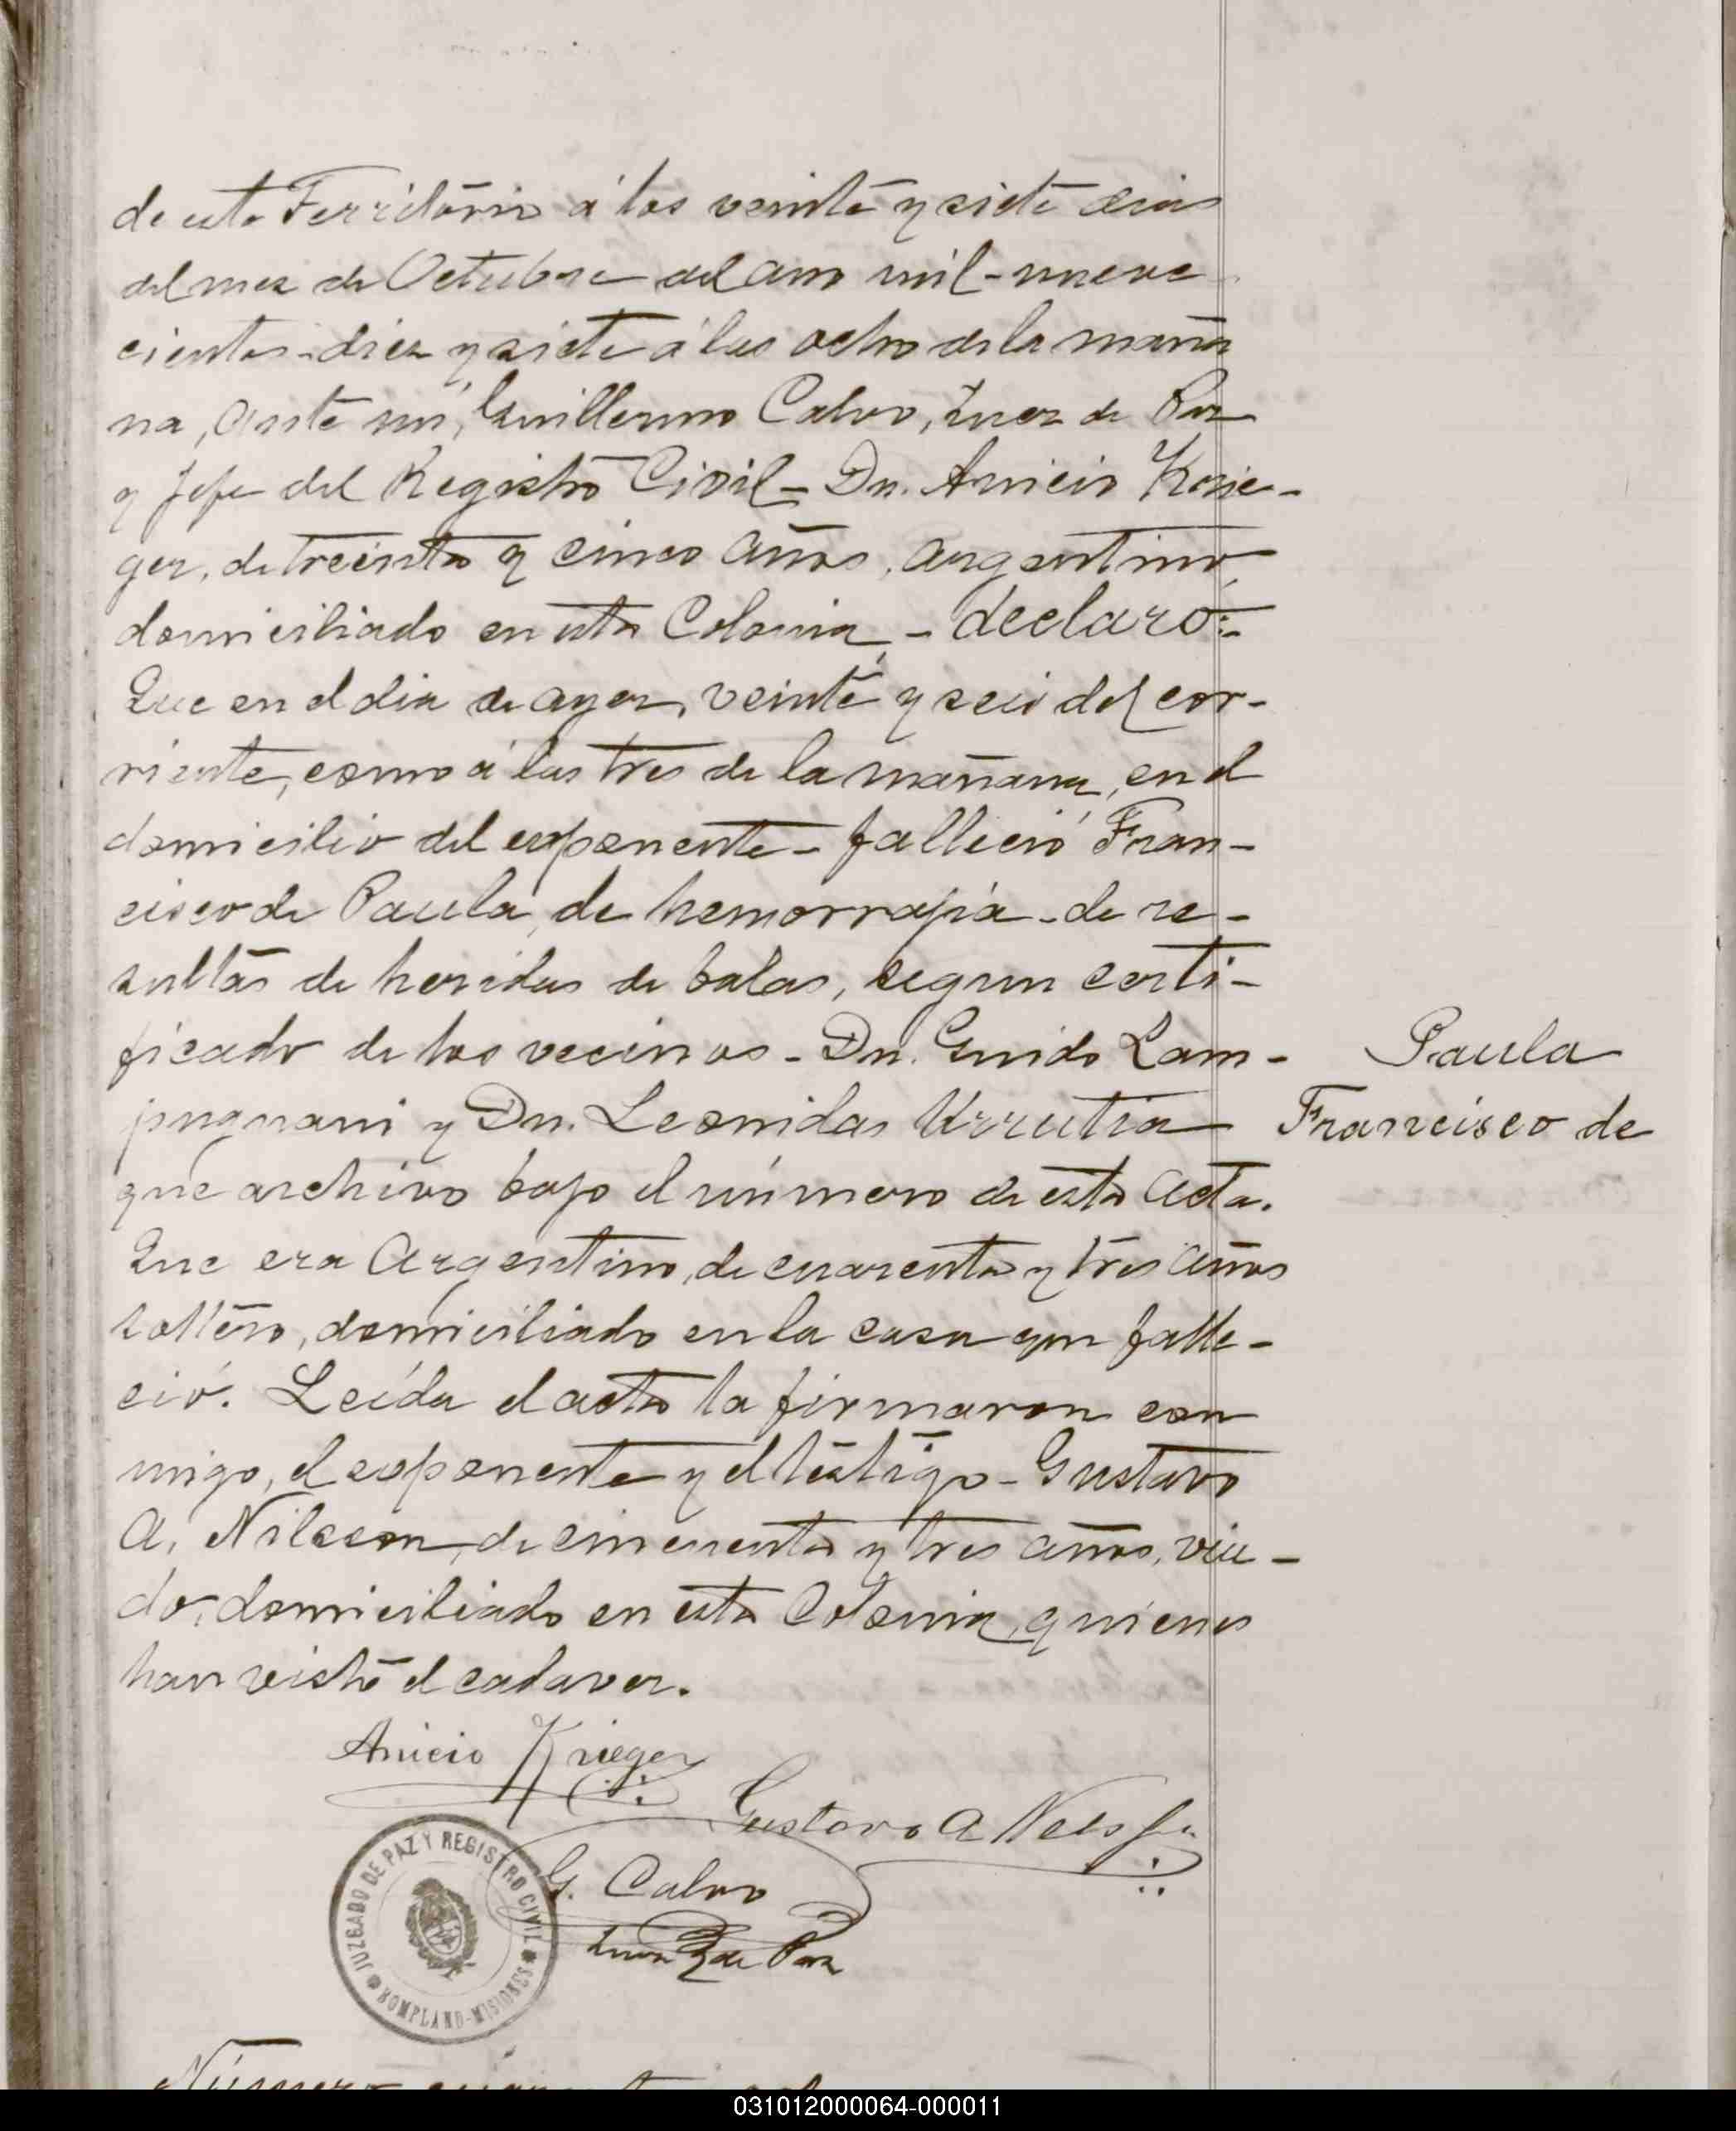 de este Territorio á los veinte y siete dias
del mes de Octubre del año mil-nueve
cientos-diez y siete á las ocho de la maña
na, ante mi, Guillermo Calvo, Juez de Paz
y Jefe del Registro Civil - Dn. Anicio Krie-
ger, de treinta y cinco años, argentino,
domiciliado en esta Colonia, - declaró:-
Que en el dia de ayer, veinte y seis del cor-
riente, como á las tres de la mañana, en el
domicilio del exponente - falleció Fran-
cisco de Paula, de hemorragia - de re-
sultas de heridas de balas, segun certi-
ficado de los vecinos - Dn. Guido Lam-
pugnani y Dn. Leonidas Urrutia
que archivo bajo el número de esta acta.
Que era Argentino, de cuarenta y tres años
soltero, domiciliado en la casa que falle-
ció. Leída el acta la firmaron con
migo, el exponente y el testigo - Gustavo
A. Nilsson, de cincuenta y tres años, viu-
do, domiciliado en esta Colonia, quienes
han visto el cadaver.
Paula
Francisco de
Anicio Krieger
Gustavo A
G. Calvo
Juez de Paz
JUZGADO DE PAZ Y REGISTRO CIVIL
BOMPLAND-MISIONES
Número
031012000064-000011